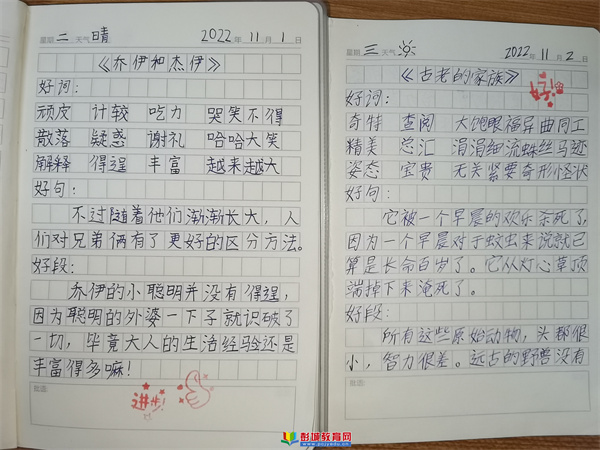 星期 二 天气 晴 2022 年 11 月 1 日
《乔伊和杰伊》
好词:
顽皮 计较 吃力 哭笑不得
散落 疑惑 谢礼 哈哈大笑
解释 得逞 丰富 越来越大
好句:
不过随着他们渐渐长大,人
们对兄弟俩有了更好的区分方法。
好段:
乔伊的小聪明并没有得逞,
因为聪明的外婆一下子就识破了
一切,毕竟大人的生活经验还是
丰富得多嘛!
批注:
进步!
星期 三 天气 2022 年 11 月 2 日
《古老的家族》
好词:
奇特 查阅 大饱眼福异曲同工
精美 总汇 涓涓细流蛛丝马迹
姿态 宝贵 无关紧要奇形怪状
好句:
它被一个早晨的欢乐杀死了,
因为一个早晨对于蚊虫来说就已
算是长命百岁了。它从灯心草顶
端掉下来淹死了。
好段:
所有这些原始动物,头都很
小,智力很差。远古的野兽没有
批注:
彭城教育网
www.pcjyedu.cn